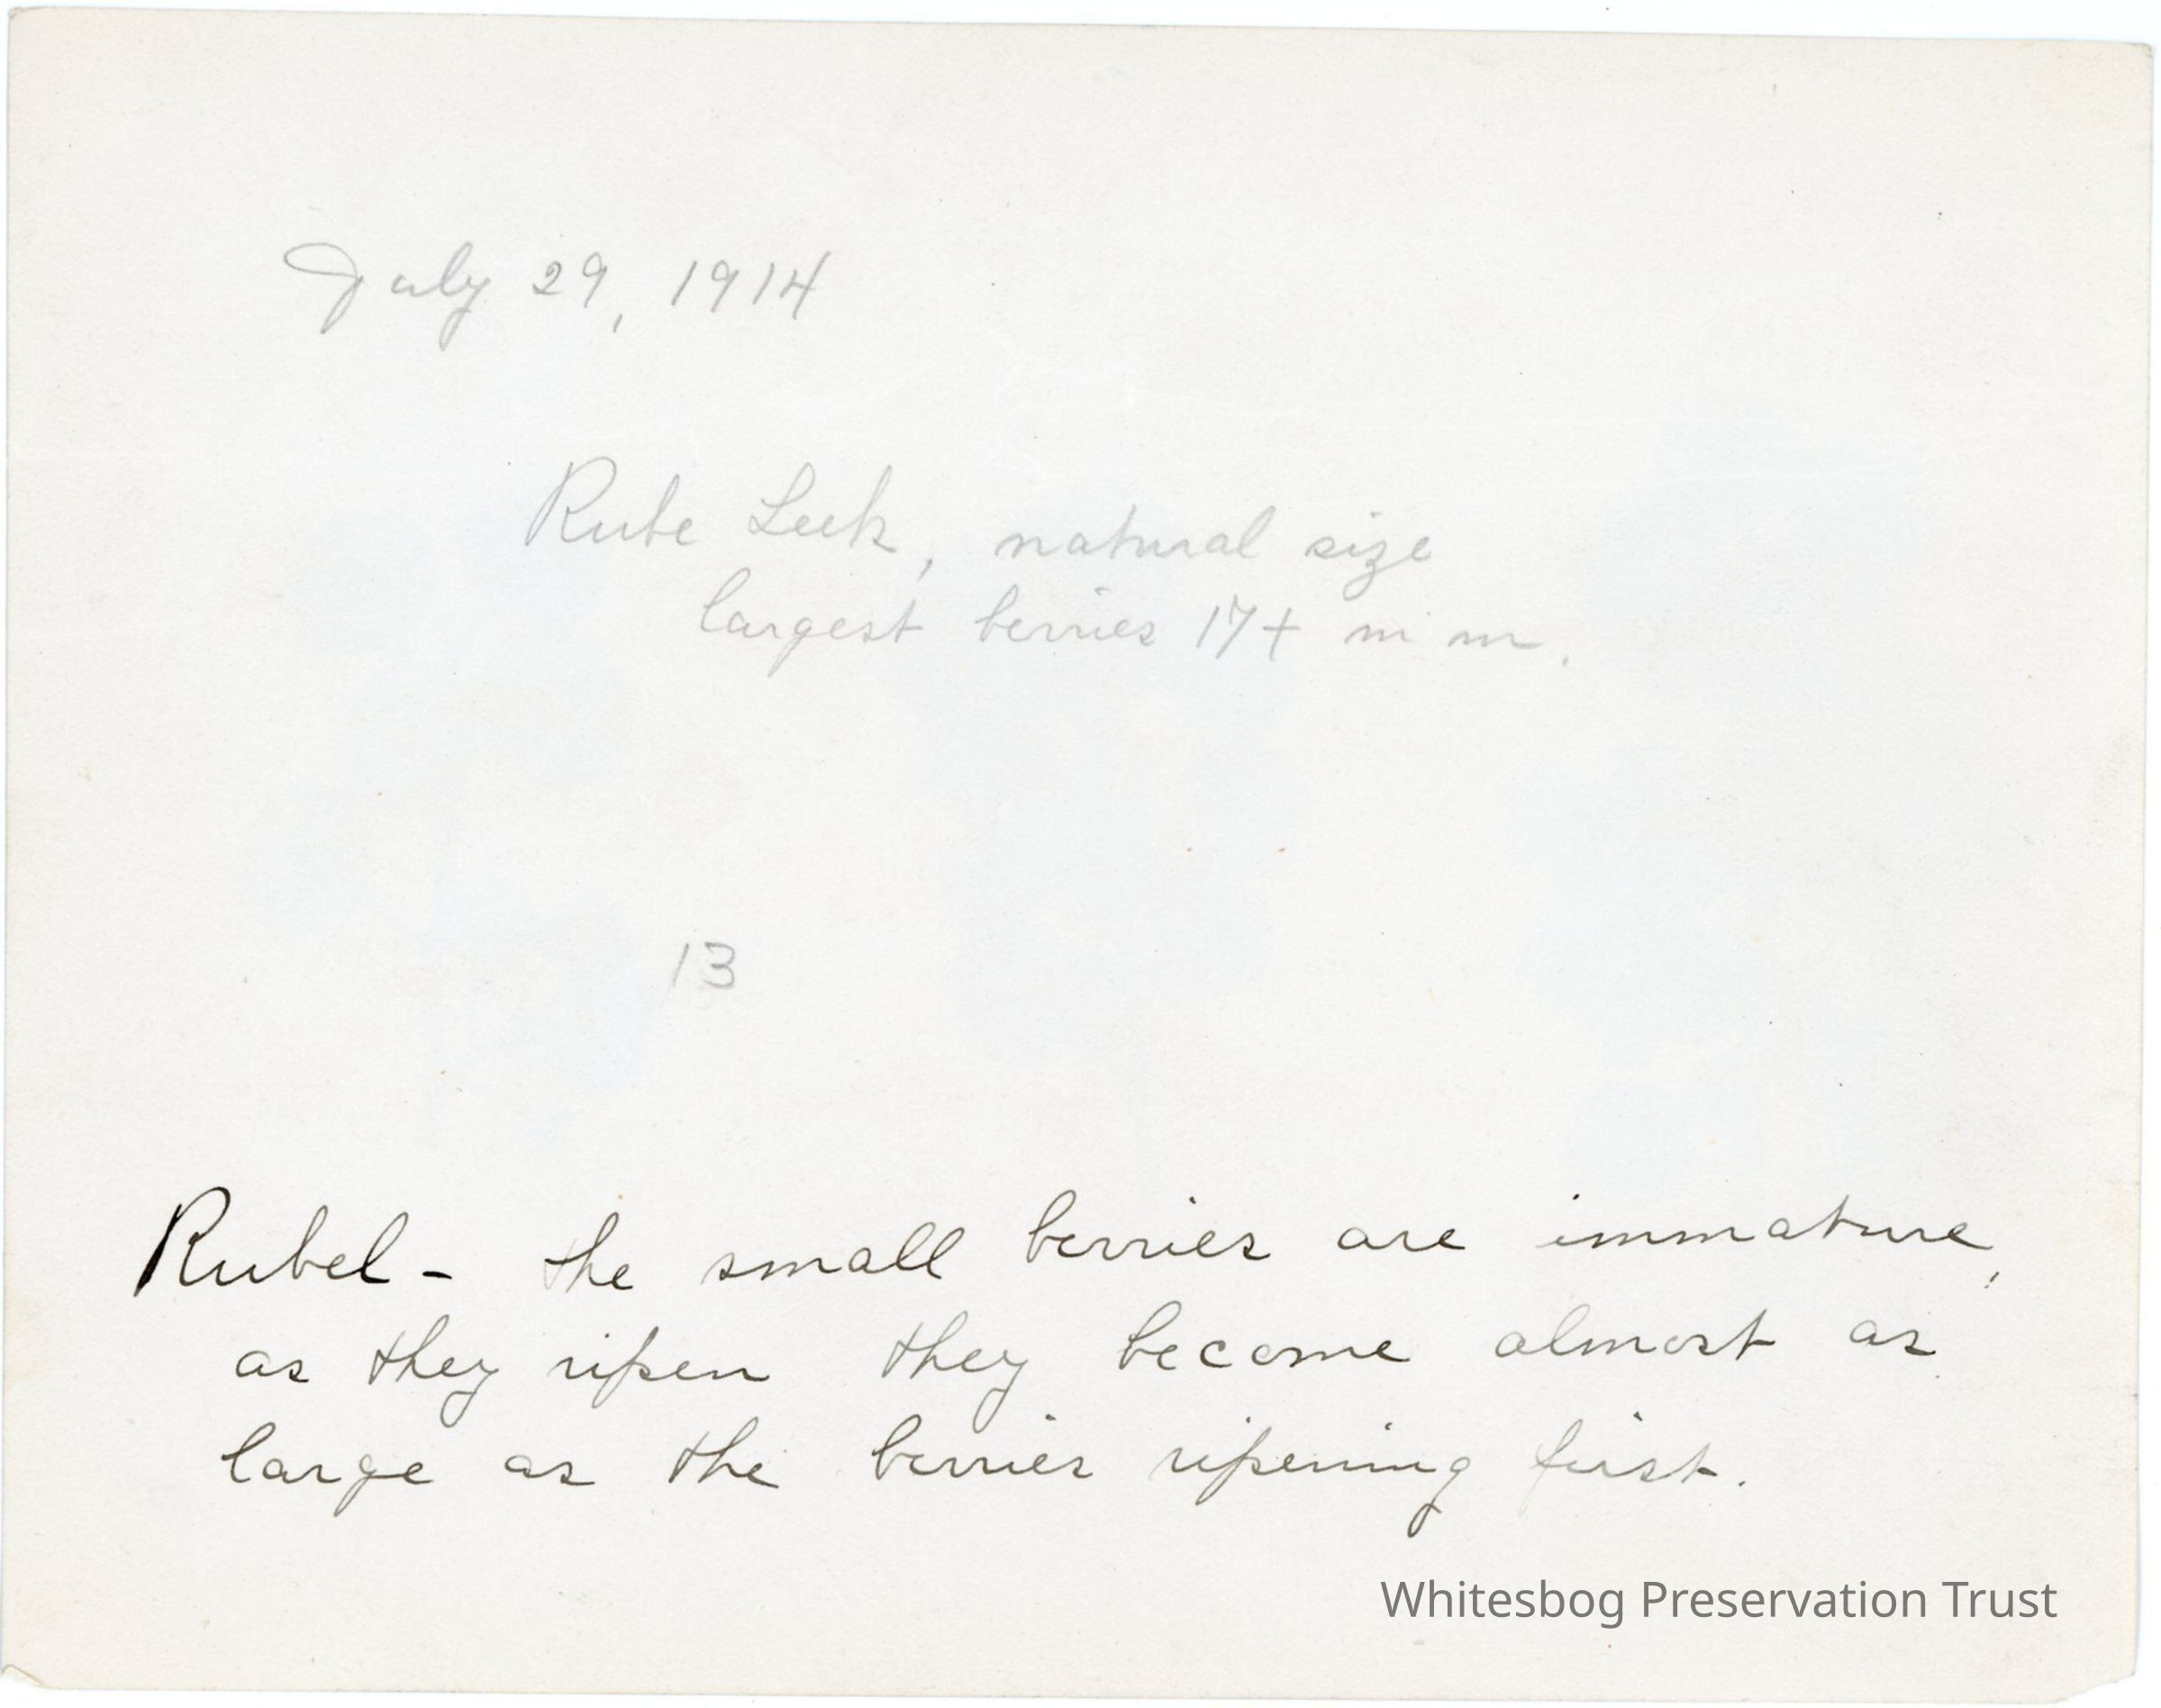 July 29, 1914
Rube Leek, natural size
largest berries 17+ m m.
13
Rubel - the small berries are immature,
as they ripen they become almost as
large as the berries ripening first.
Whitesbog Preservation Trust